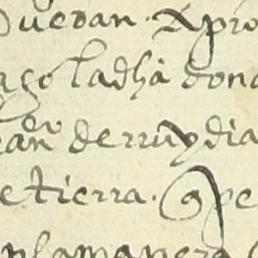 uedan. Apro
aço la dha dona
an de rruy dia
e tierra. q pe
n la manera